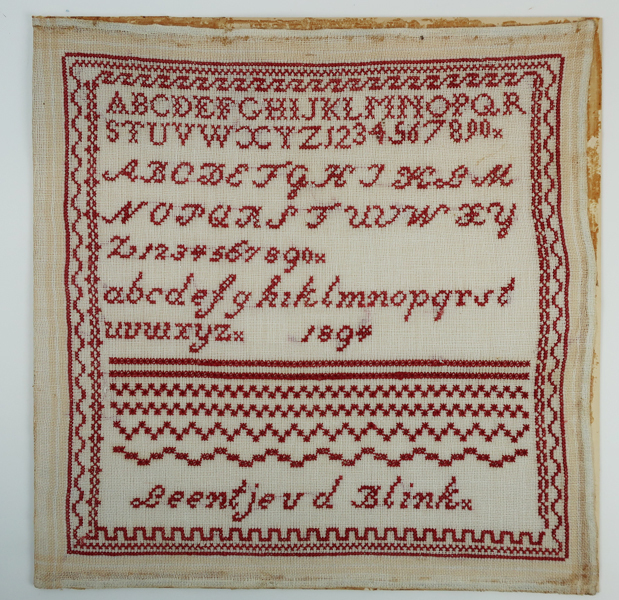 ABCDEFGHIJKLMNOPQR
STUVWXYZ1234567890x
ABCDEFGHIJKLM
NOPQRSTUVWXY
Z1234567890x
abcdefghiklmnopqrst
uvwxyzx 1894
Leentje v d Blinkx